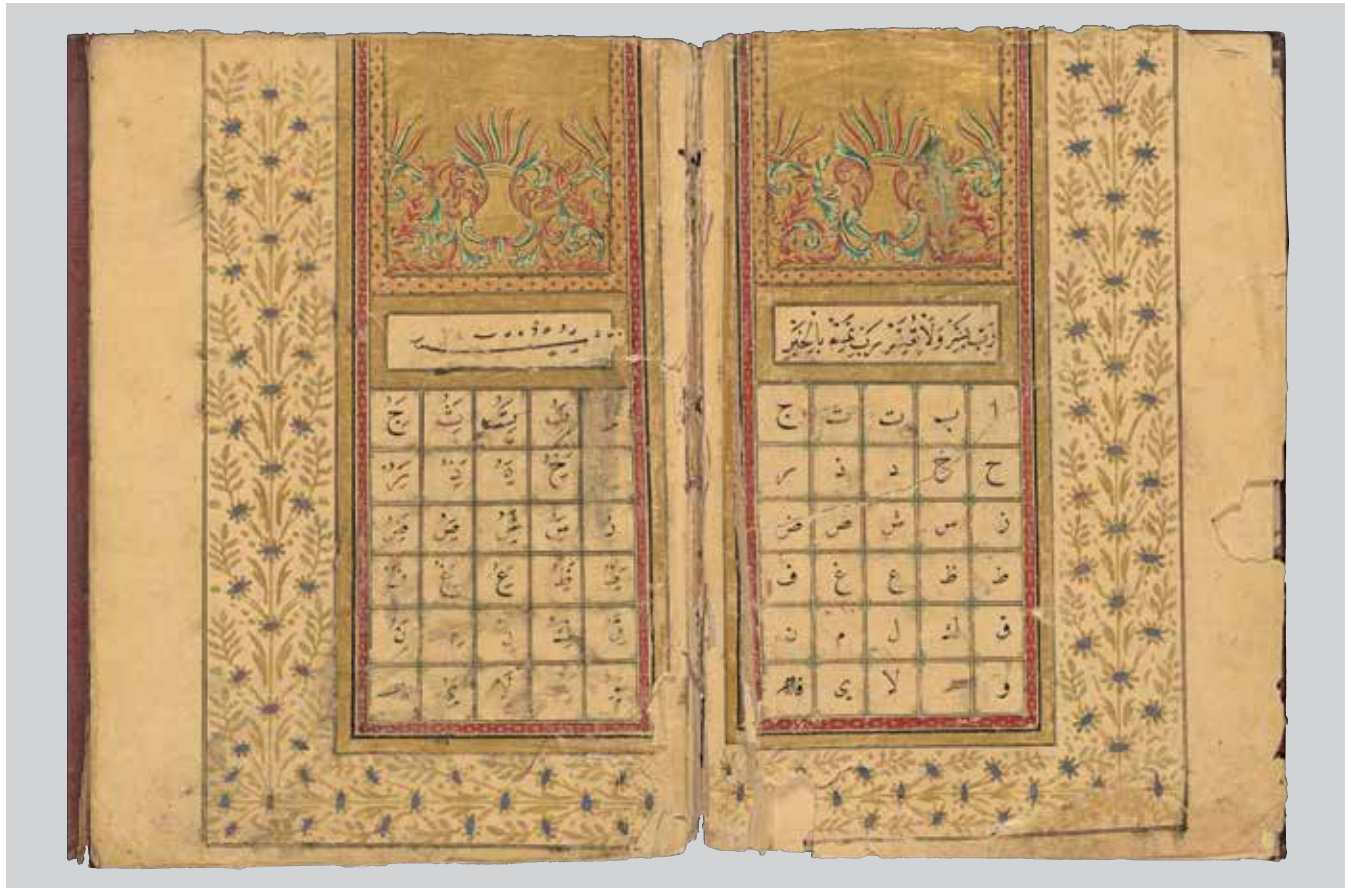 رَبِّ يَسِّرْ وَلَا تُعَسِّرْ رَبِّ تَمِّمْ بِالْخَيْرِ
ا ب ت ث ج
ح خ د ذ ر
ز س ش ص ض
ط ظ ع غ ف
ق ك ل م ن
و ه لا ى
تَُِ ثَُِ جَُِ
خَُِ دَُِ ذَُِ رَُِ
زَُِ سَُِ شَُِ صَُِ ضَُِ
طَُِ ظَُِ عَُِ غَُِ فَُِ
قَُِ كَُِ لَُِ نَُِ